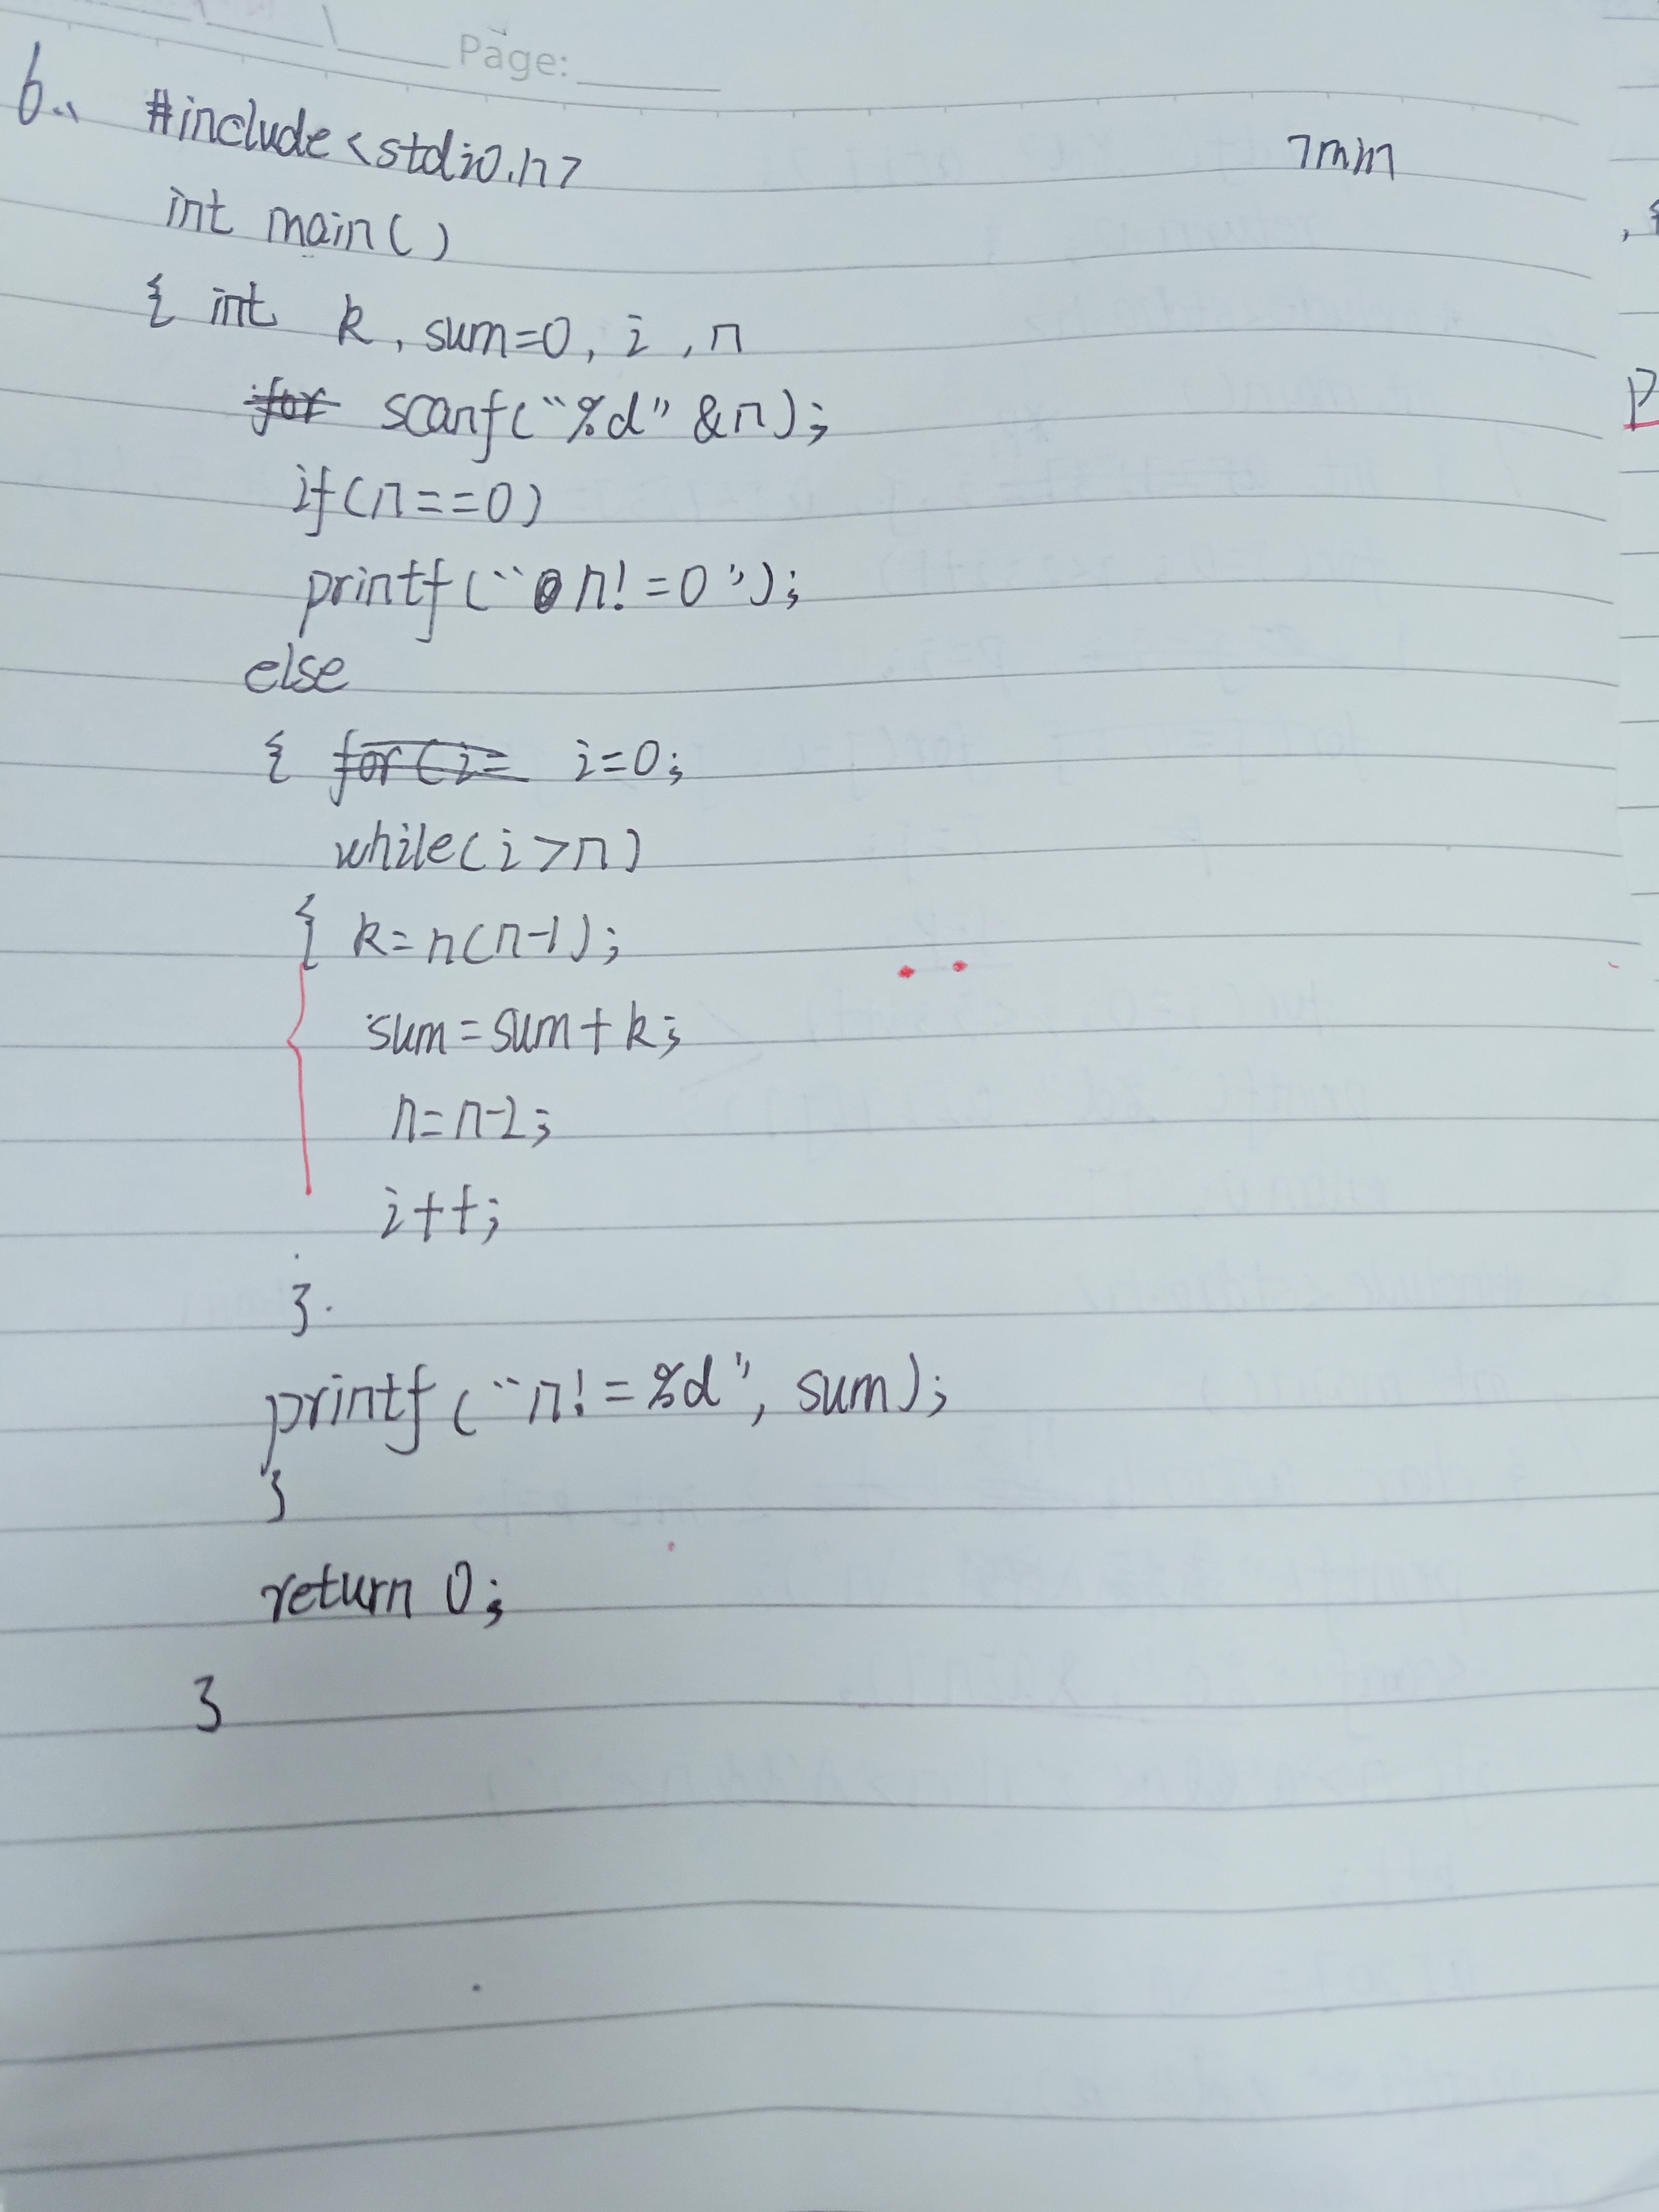 Page:
6.
#include<stdio.h>
7mm
int main()
{ int k, sum=0, i, n
scanf("%d" &n);
if(n==0)
printf("n!=0");
else
{ i=0;
while(i>n)
{ k=n(n-1);
sum=sum+k;
n=n-2;
i++;
}
printf("n!=%d", sum);
}
return 0;
}